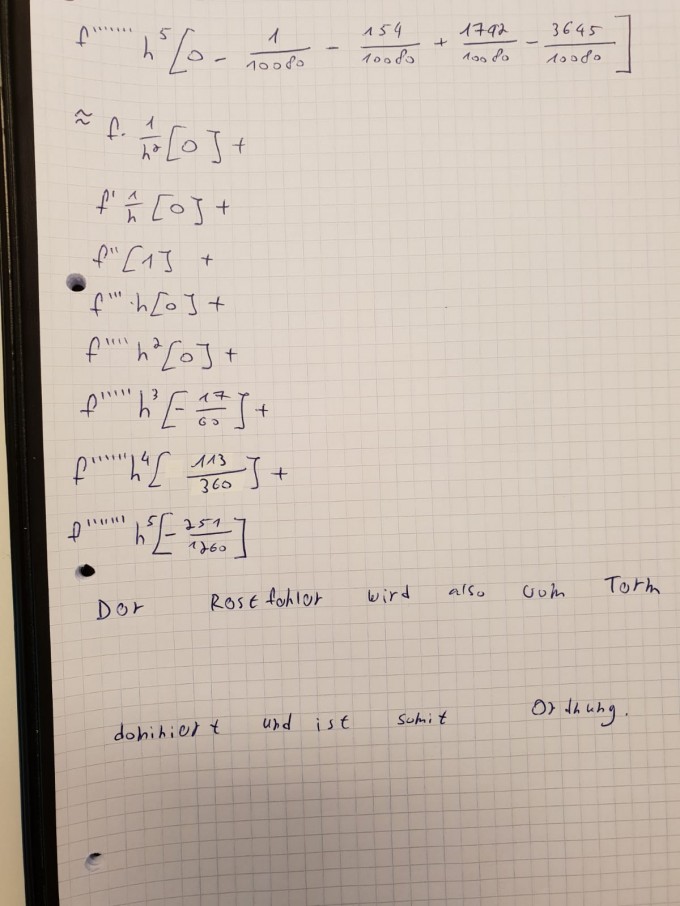 f''''''' h⁵ [0 - 1/10080 - 154/10080 + 1792/10080 - 3645/10080]
≈ f · 1/h² [0] +
f' 1/h [0] +
f'' [1] +
f''' · h [0] +
f'''' h² [0] +
f''''' h³ [- 17/60] +
f'''''' h⁴ [113/360] +
f''''''' h⁵ [- 251/1260]
Der Restfehler wird also vom Term
dominiert und ist somit Ordnung.